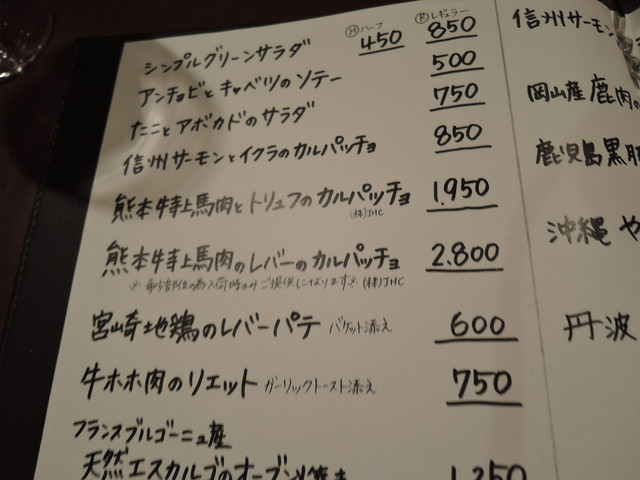 Ⓗハーフ Ⓡレギュラー
シンプルグリーンサラダ 450 850
アンチョビとキャベツのソテー 500
たことアボカドのサラダ 750
信州サーモンとイクラのカルパッチョ 850
熊本特上馬肉とトリュフのカルパッチョ 1.950
(株)JHC
熊本特上馬肉のレバーのカルパッチョ 2.800
※希少部位の為入荷時のみご提供になります※ (株)JHC
宮崎地鶏のレバーパテ バゲット添え 600
牛ホホ肉のリエット ガーリックトースト添え 750
フランスブルゴーニュ産
天然エスカルゴのオーブン焼き 1.250
信州サーモン
岡山産鹿肉の
鹿児島黒豚
沖縄 や
丹波